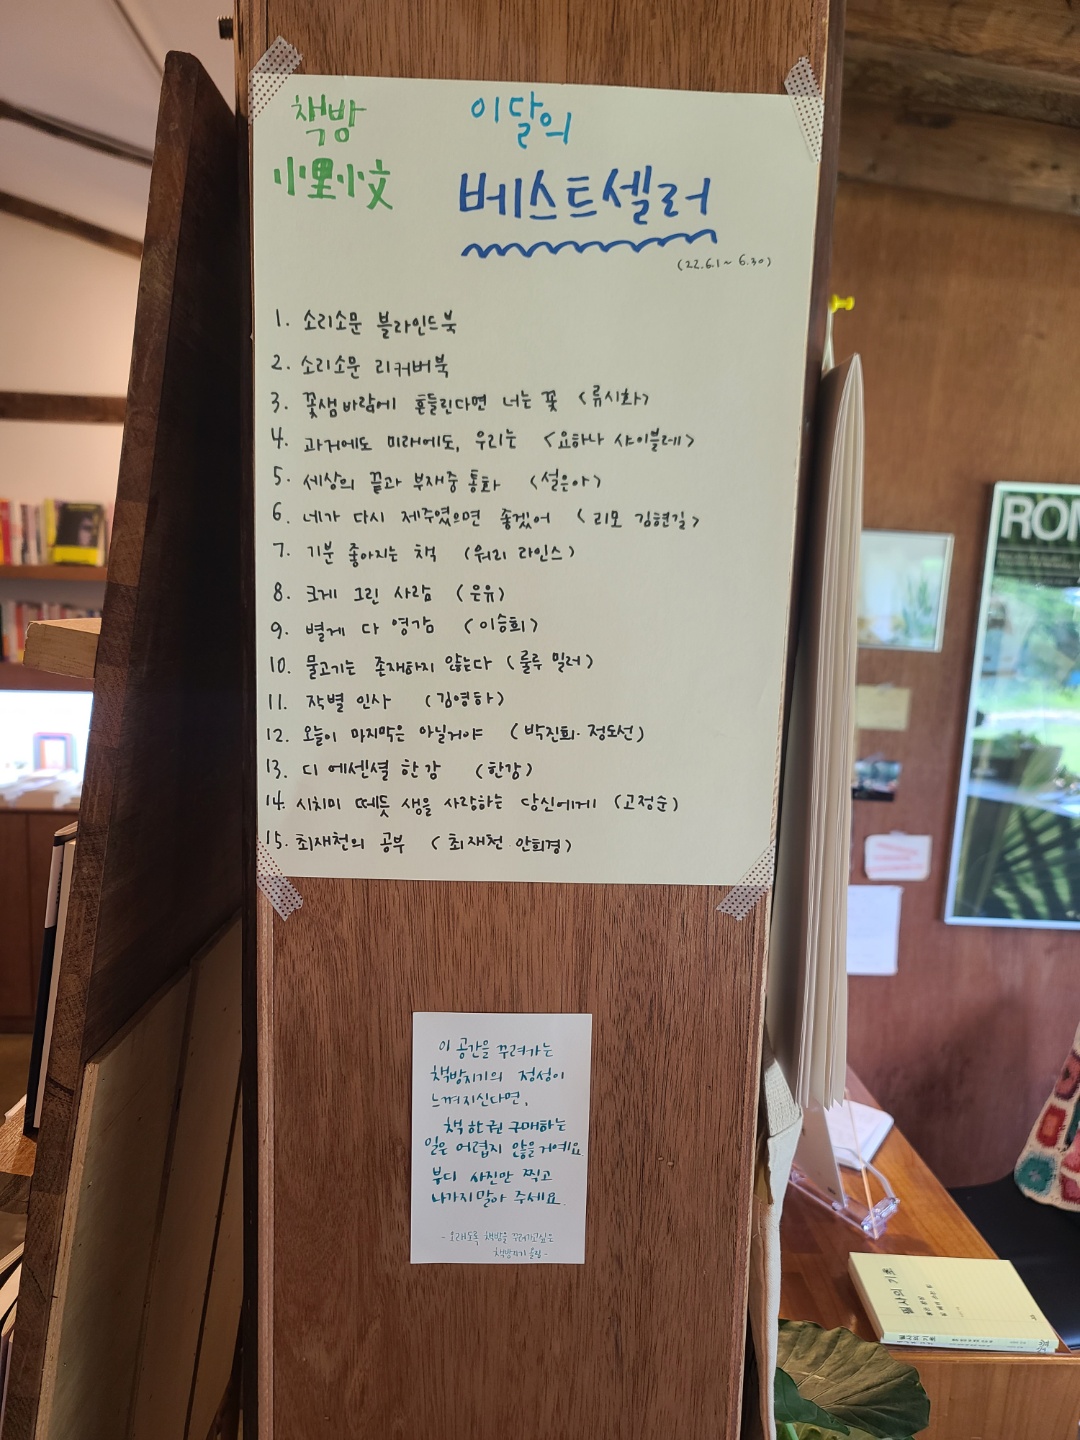 책방
小里小文
이달의
베스트셀러
(22.6.1 ~ 6.30)
1. 소리소문 블라인드북
2. 소리소문 리커버북
3. 꽃샘바람에 흔들린다면 너는 꽃 <류시화>
4. 과거에도 미래에도, 우리는 <요하나 샤이블레>
5. 세상의 끝과 부재중 통화 <설은아>
6. 네가 다시 제주였으면 좋겠어 <리모 김현길>
7. 기분 좋아지는 책 (워리 라인스)
8. 크게 그린 사람 (은유)
9. 별게 다 영감 (이승희)
10. 물고기는 존재하지 않는다 (룰루 밀러)
11. 작별 인사 (김영하)
12. 오늘이 마지막은 아닐거야 (박진희·정도선)
13. 디 에센셜 한강 (한강)
14. 시치미 떼듯 생을 사랑하는 당신에게 (고정순)
15. 최재천의 공부 (최재천 안희경)
이 공간을 꾸려가는
책방지기의 정성이
느껴지신다면,
책 한 권 구매하는
일은 어렵지 않을거예요
부디 사진만 찍고
나가지말아 주세요.
- 오래도록 책방을 꾸려가고싶은
책방지기 올림 -
ROM
필사의 기초